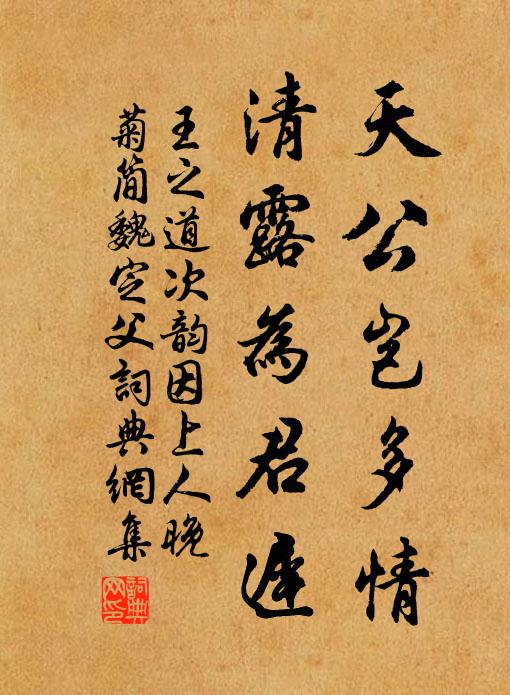 天公岂多情
清露為君遲
王之道次韵因上人晚
菊简魏定父詞典網集
詞典网印